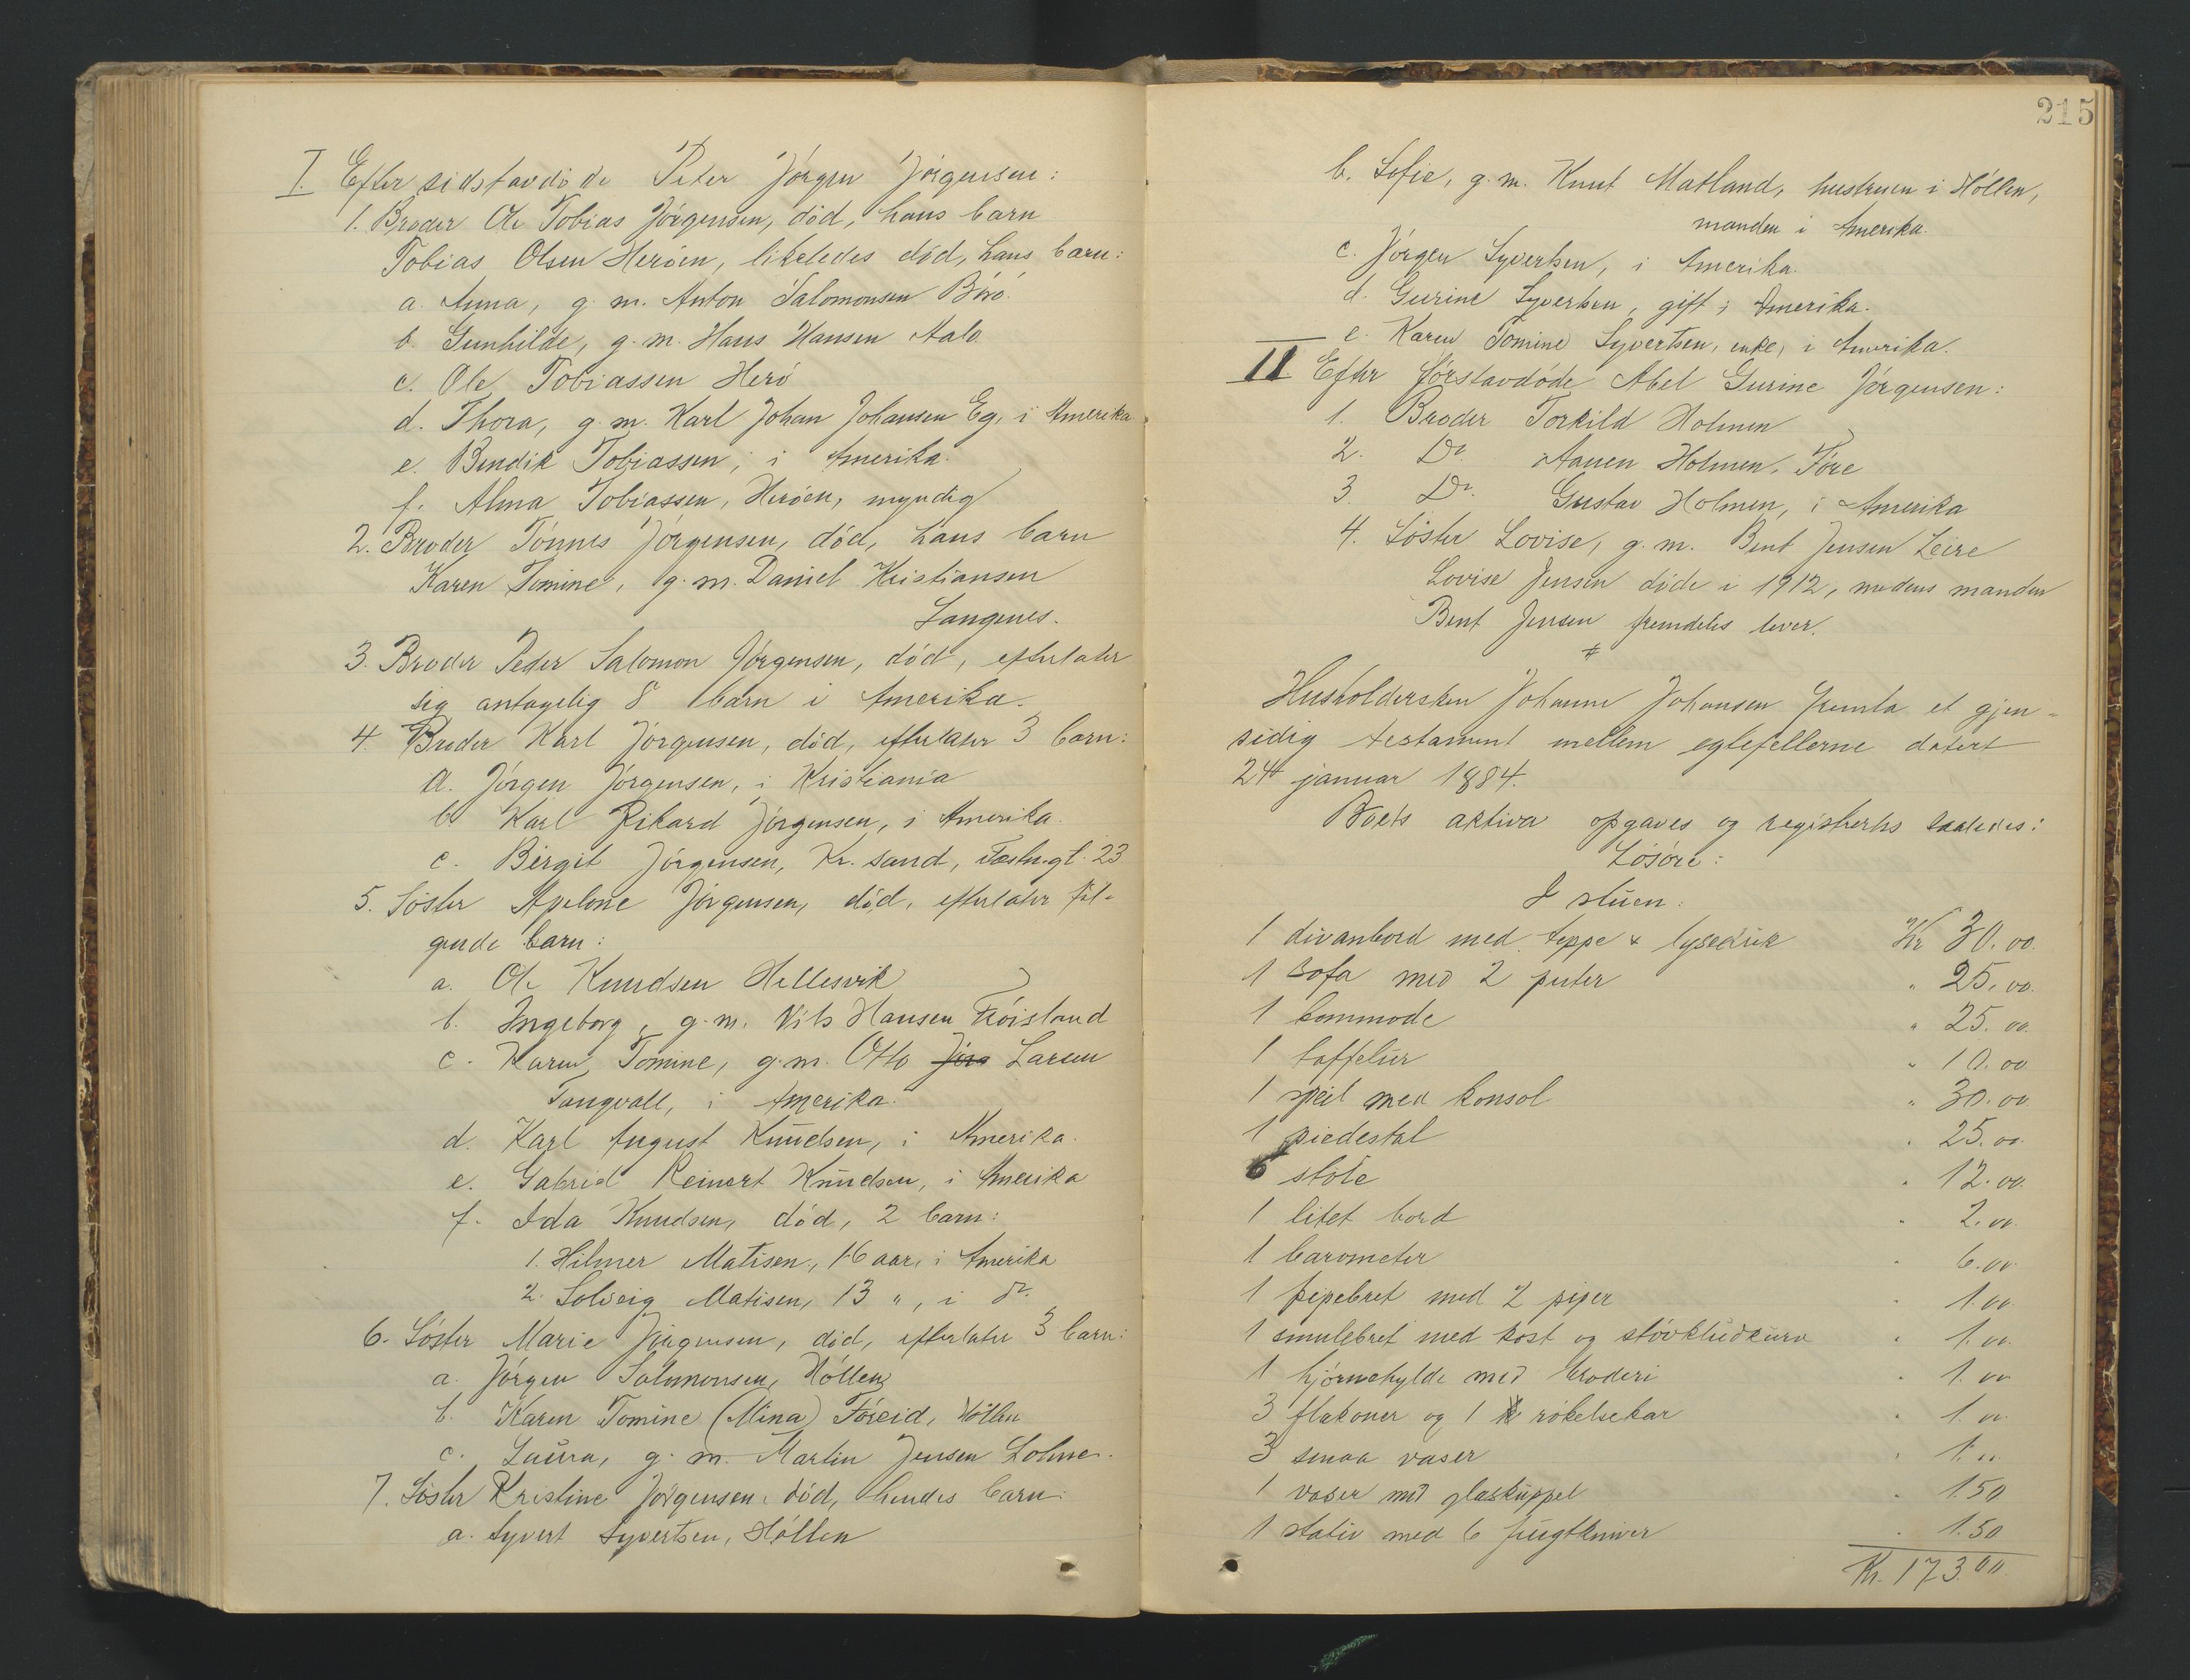 I. Efter sidstavdöde Peter Jörgen Jörgensen:
1. Broder Ole Tobias Jörgensen, död, hans barn
Tobias Olsen Heröen, likeledes död, hans barn:
a. Anna, g. m. Anton Salomonsen Börö.
b. Gunhilde, g. m. Hans Hansen Aalo.
c. Ole Tobiassen Herö
d. Thora, g. m. Karl Johan Johansen Eg, i Amerika
e. Bendik Tobiassen, i Amerika.
f. Alma Tobiassen, Heröen, myndig
2. Broder Tönnes Jörgensen, död, hans barn
Karen Tomine, g. m. Daniel Kristiansen
Langenes.
3. Broder Peder Salomon Jörgensen, död, efterlater
sig antagelig 8 barn i Amerika.
4. Broder Karl Jörgensen, död, efterlater 3 barn:
a. Jörgen Jörgensen, i Kristiania
b. Karl Rikard Jörgensen, i Amerika.
c. Birgit Jörgensen, Kr. sand, Festn.gt. 23
5. Söster Apelone Jörgensen, död, efterlater föl-
gende barn:
a. Ole Knudsen Hellesvik
b. Ingeborg, g. m. Nils Hansen Fröisland
c. Karen Tomine, g. m. Otto Jörg Larsen
Tangvall, i Amerika.
d. Karl August Knudsen, i Amerika.
e. Gabriel Reinert Knudsen, i Amerika
f. Ida Knudsen, död, 2 barn:
1. Hilmer Matisen, 16 aar, i Amerika
2. Solveig Matisen, 13 ", i do.
6. Söster Marie Jörgensen, död, efterlater 3 barn:
a. Jörgen Salomonsen, Höllen
b. Karen Tomine (Mina) Föreid, Höllen
c. Laura, g. m. Martin Jensen Lohne.
7. Söster Kristine Jörgensen, död, hendes barn:
a. Syvert Syvertsen, Höllen
215
b. Sofie, g. m. Knut Matland, hustruen i Höllen,
manden i Amerika.
c. Jörgen Syvertsen, i Amerika.
d. Gurine Syvertsen, gift i Amerika.
e. Karen Tomine Syvertsen, enke, i Amerika.
II. Efter förstavdöde Abel Gurine Jörgensen:
1. Broder Torkild Holmen
2. Do. Aanen Holmen, Töre
3. Do. Gustav Holmen, i Amerika
4. Söster Lovise, g. m. Bent Jensen Leire
Lovise Jensen döde i 1912, medens manden
Bent Jensen fremdeles lever.
Husholdersken Johanne Johansen fremla et gjen-
sidig testament mellem egtefellerne datert
24 januar 1884.
Boets aktiva opgaves og registrertes saaledes:
Lösöre:
I stuen:
1 divanbord med teppe & lysedük Kr 30.00.
1 sofa med 2 puter " 25.00.
1 kommode " 25.00.
1 taffelur " 10.00
1 speil med konsol " 30.00
1 piedestal " 25.00.
6 stole " 12.00.
1 litet bord " 2.00.
1 barometer " 6.00.
1 pipebret med 2 piper " 1.00
1 smulebret med kost og stövkludkurv " 1.00.
1 hjörnehylde med broderi " 1.00
3 flakoner og 1 rökelsekar " 1.00.
3 smaa vaser " 1.00
1 vaser med glaskuppel " 1.50
1 stativ med 6 frugtkniver " 1.50
Kr. 173.00.